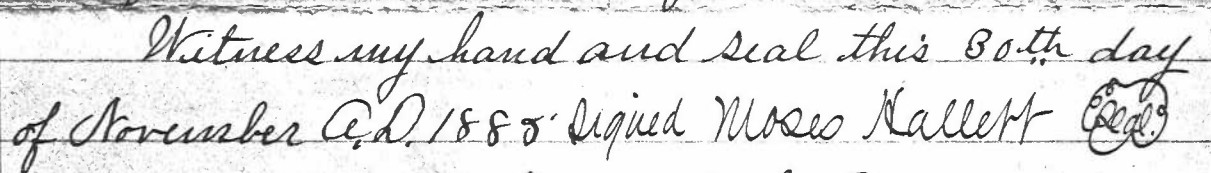 Witness my hand and seal this 30th day
of November A.D. 1888 Signed Moses Hallett (Seal.)